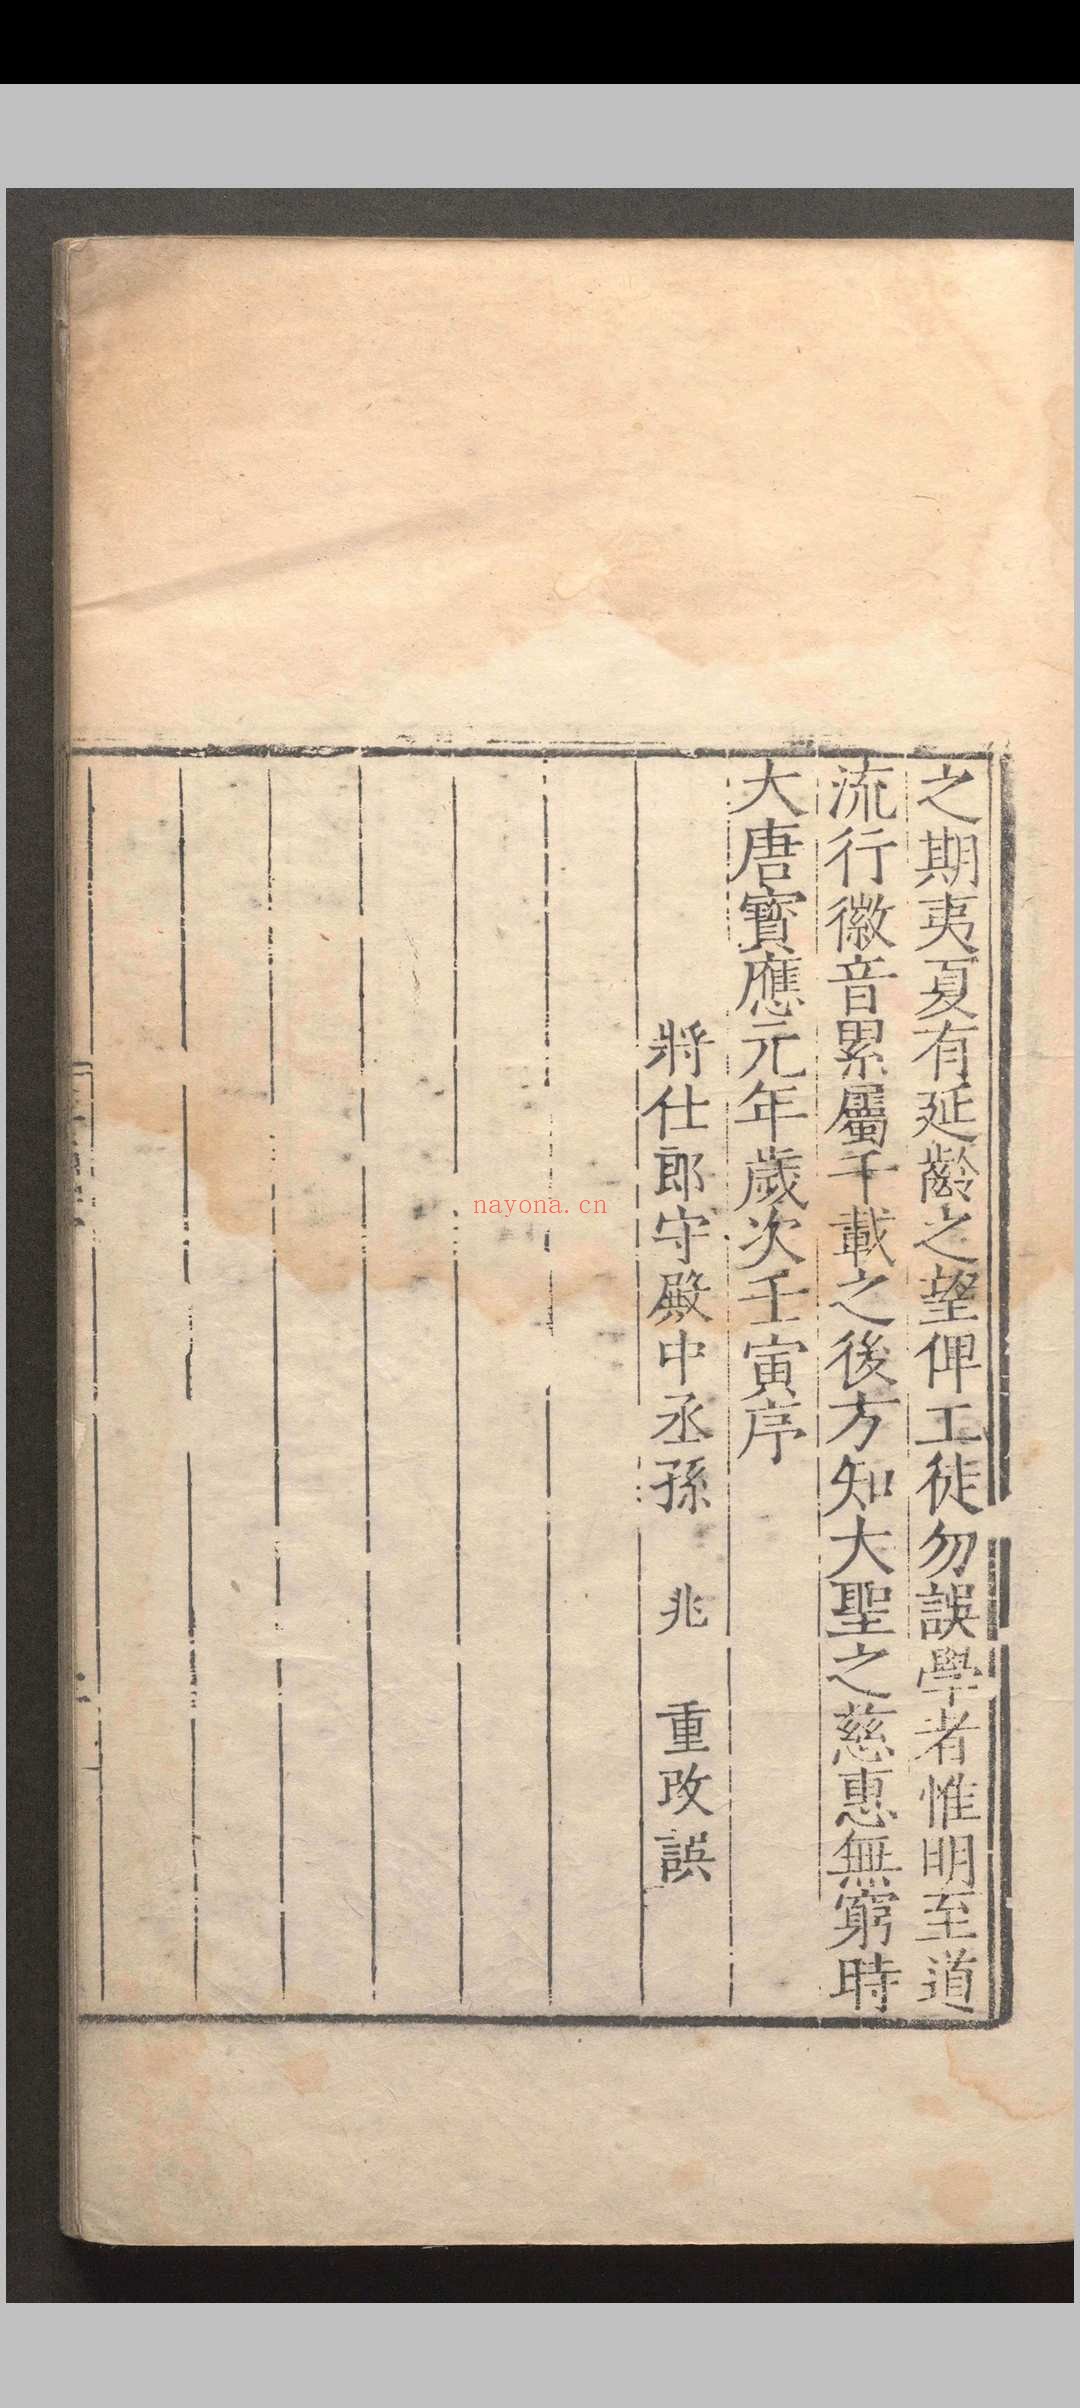 之期夷夏有延齡之望俾工徒勿誤學者惟明至道
流行徽音累屬千載之後方知大聖之慈惠無窮時
大唐寳應元年歲次壬寅序
將仕郎守殿中丞孫 兆 重改誤
nayona.cn